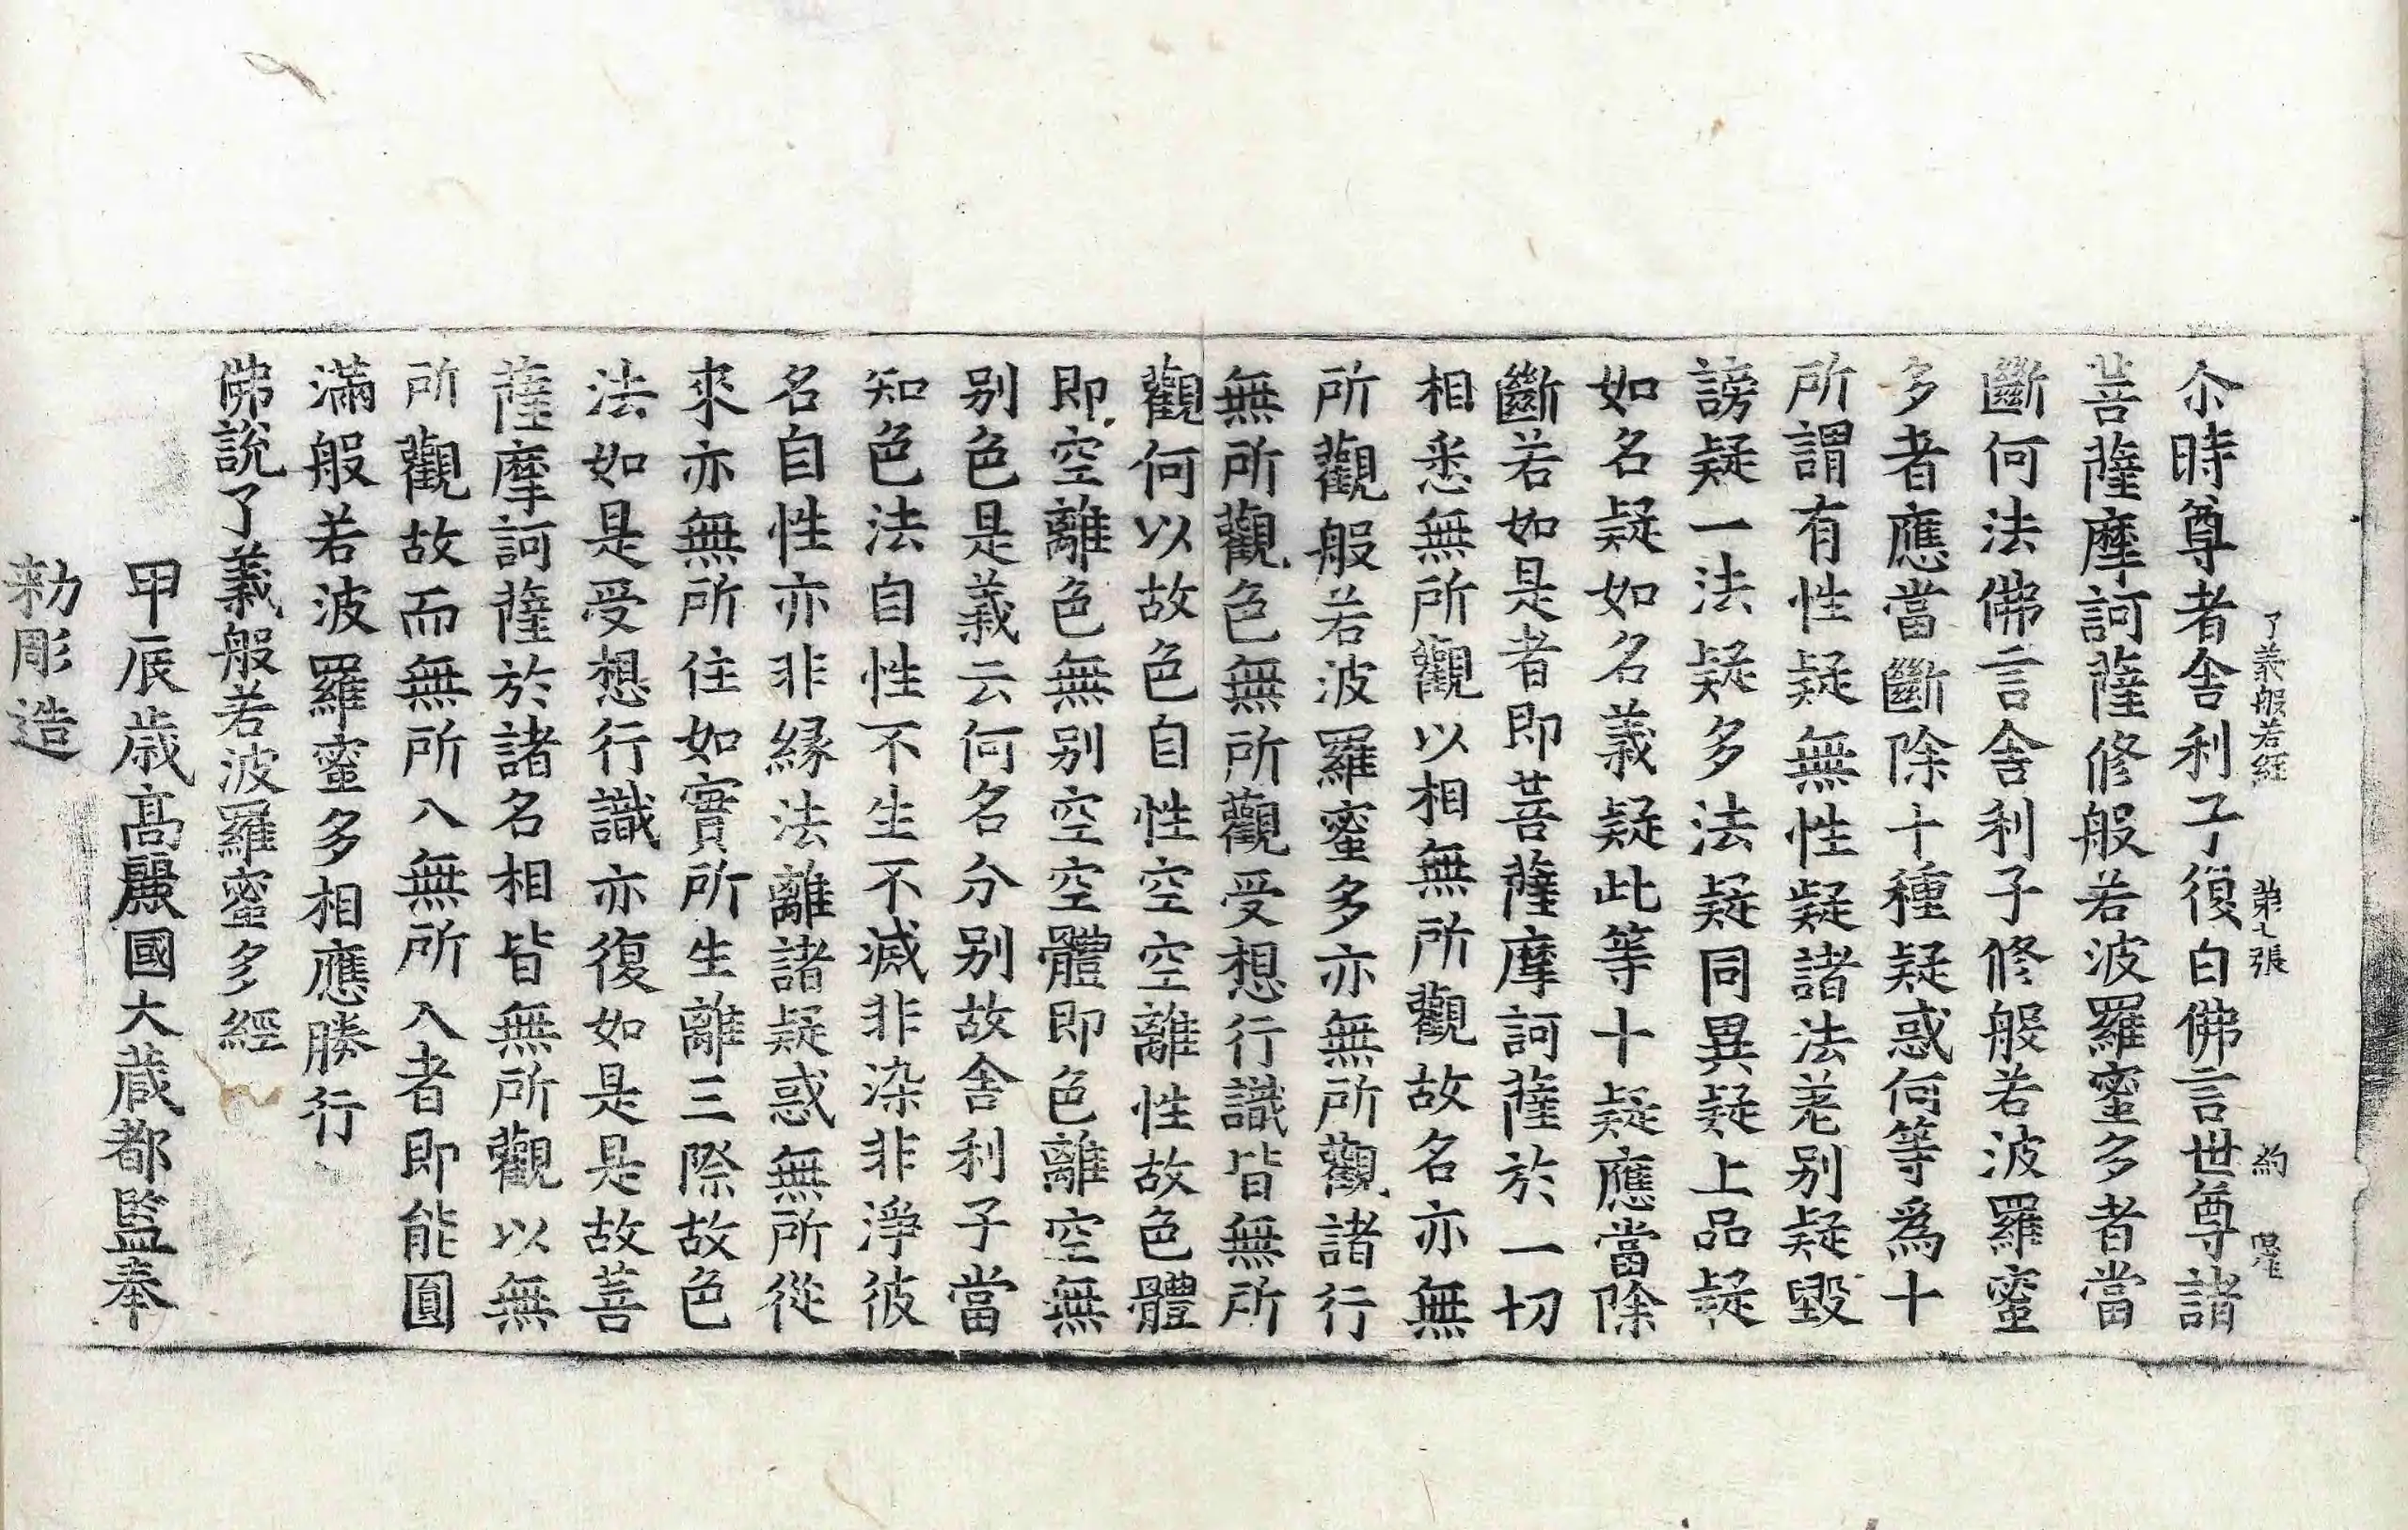 了義般若經 第七張 約
尒時尊者舎利子復白佛言世尊諸
菩薩摩訶薩修般若波羅蜜多者當
斷何法佛言舎利子修般若波羅蜜
多者應當斷除十種疑惑何等爲十
所謂有性疑無性疑諸法差别疑毀
謗疑一法疑多法疑同異疑上品疑
如名疑如名義疑此等十疑應當除
斷若如是者即菩薩摩訶薩於一切
相悉無所觀以相無所觀故名亦無
所觀般若波羅蜜多亦無所觀諸行
無所觀色無所觀受想行識皆無所
觀何以故色自性空空離性故色體
即空離色無别空空體即色離空無
别色是義云何名分别故舎利子當
知色法自性不生不滅非染非淨彼
名自性亦非縁法離諸疑惑無所從
來亦無所住如實所生離三際故色
法如是受想行識亦復如是是故菩
薩摩訶薩於諸名相皆無所觀以無
所觀故而無所入無所入者即能圓
滿般若波羅蜜多相應勝行
佛說了義般若波羅蜜多經
甲辰歳髙麗國大蔵都監奉
勑彫造